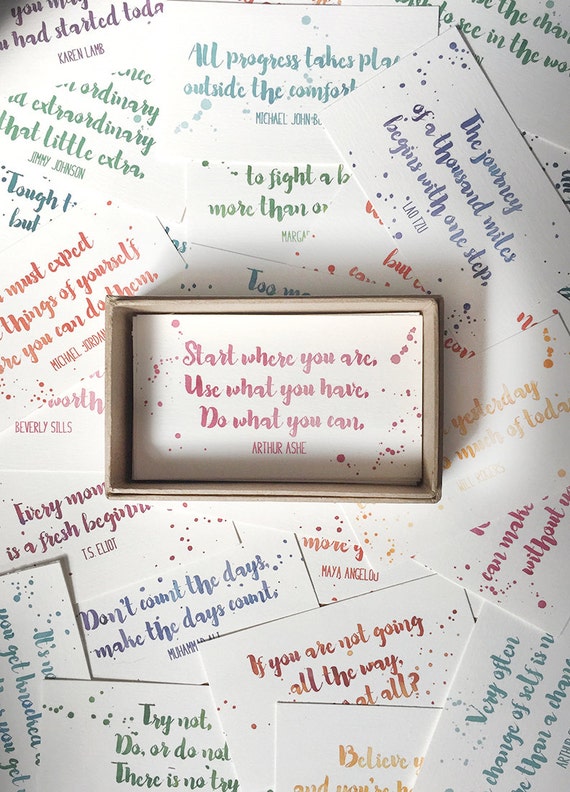 you may
u had started toda
KAREN LAMB
All progress takes plac
outside the comfort
MICHAEL JOHN-B
be the chan
to see in the wor
ordinary
d extraordinary
that little extra.
JIMMY JOHNSON
The journey
of a thousand miles
begins with one step.
LAO TZU
to fight a b
more than on
MARGAR
Tough t
but
must expect
things of yourself
re you can do them.
MICHAEL JORDAN
Too m
but
worth
BEVERLY SILLS
Start where you are,
Use what you have,
Do what you can.
ARTHUR ASHE
yesterday
much of today
WILL ROGERS
Every mom
is a fresh beginn
T.S. ELIOT
more y
MAYA ANGELOU
can make
without yo
Don't count the days,
make the days count.
MUHAMMAD ALI
It's no
you get knocked
you get u
If you are not going
all the way,
at all?
Very often
change of self is n
re than a chang
ARTHUR
Try not,
Do, or do not
There is no try
Believe y
and you're ha